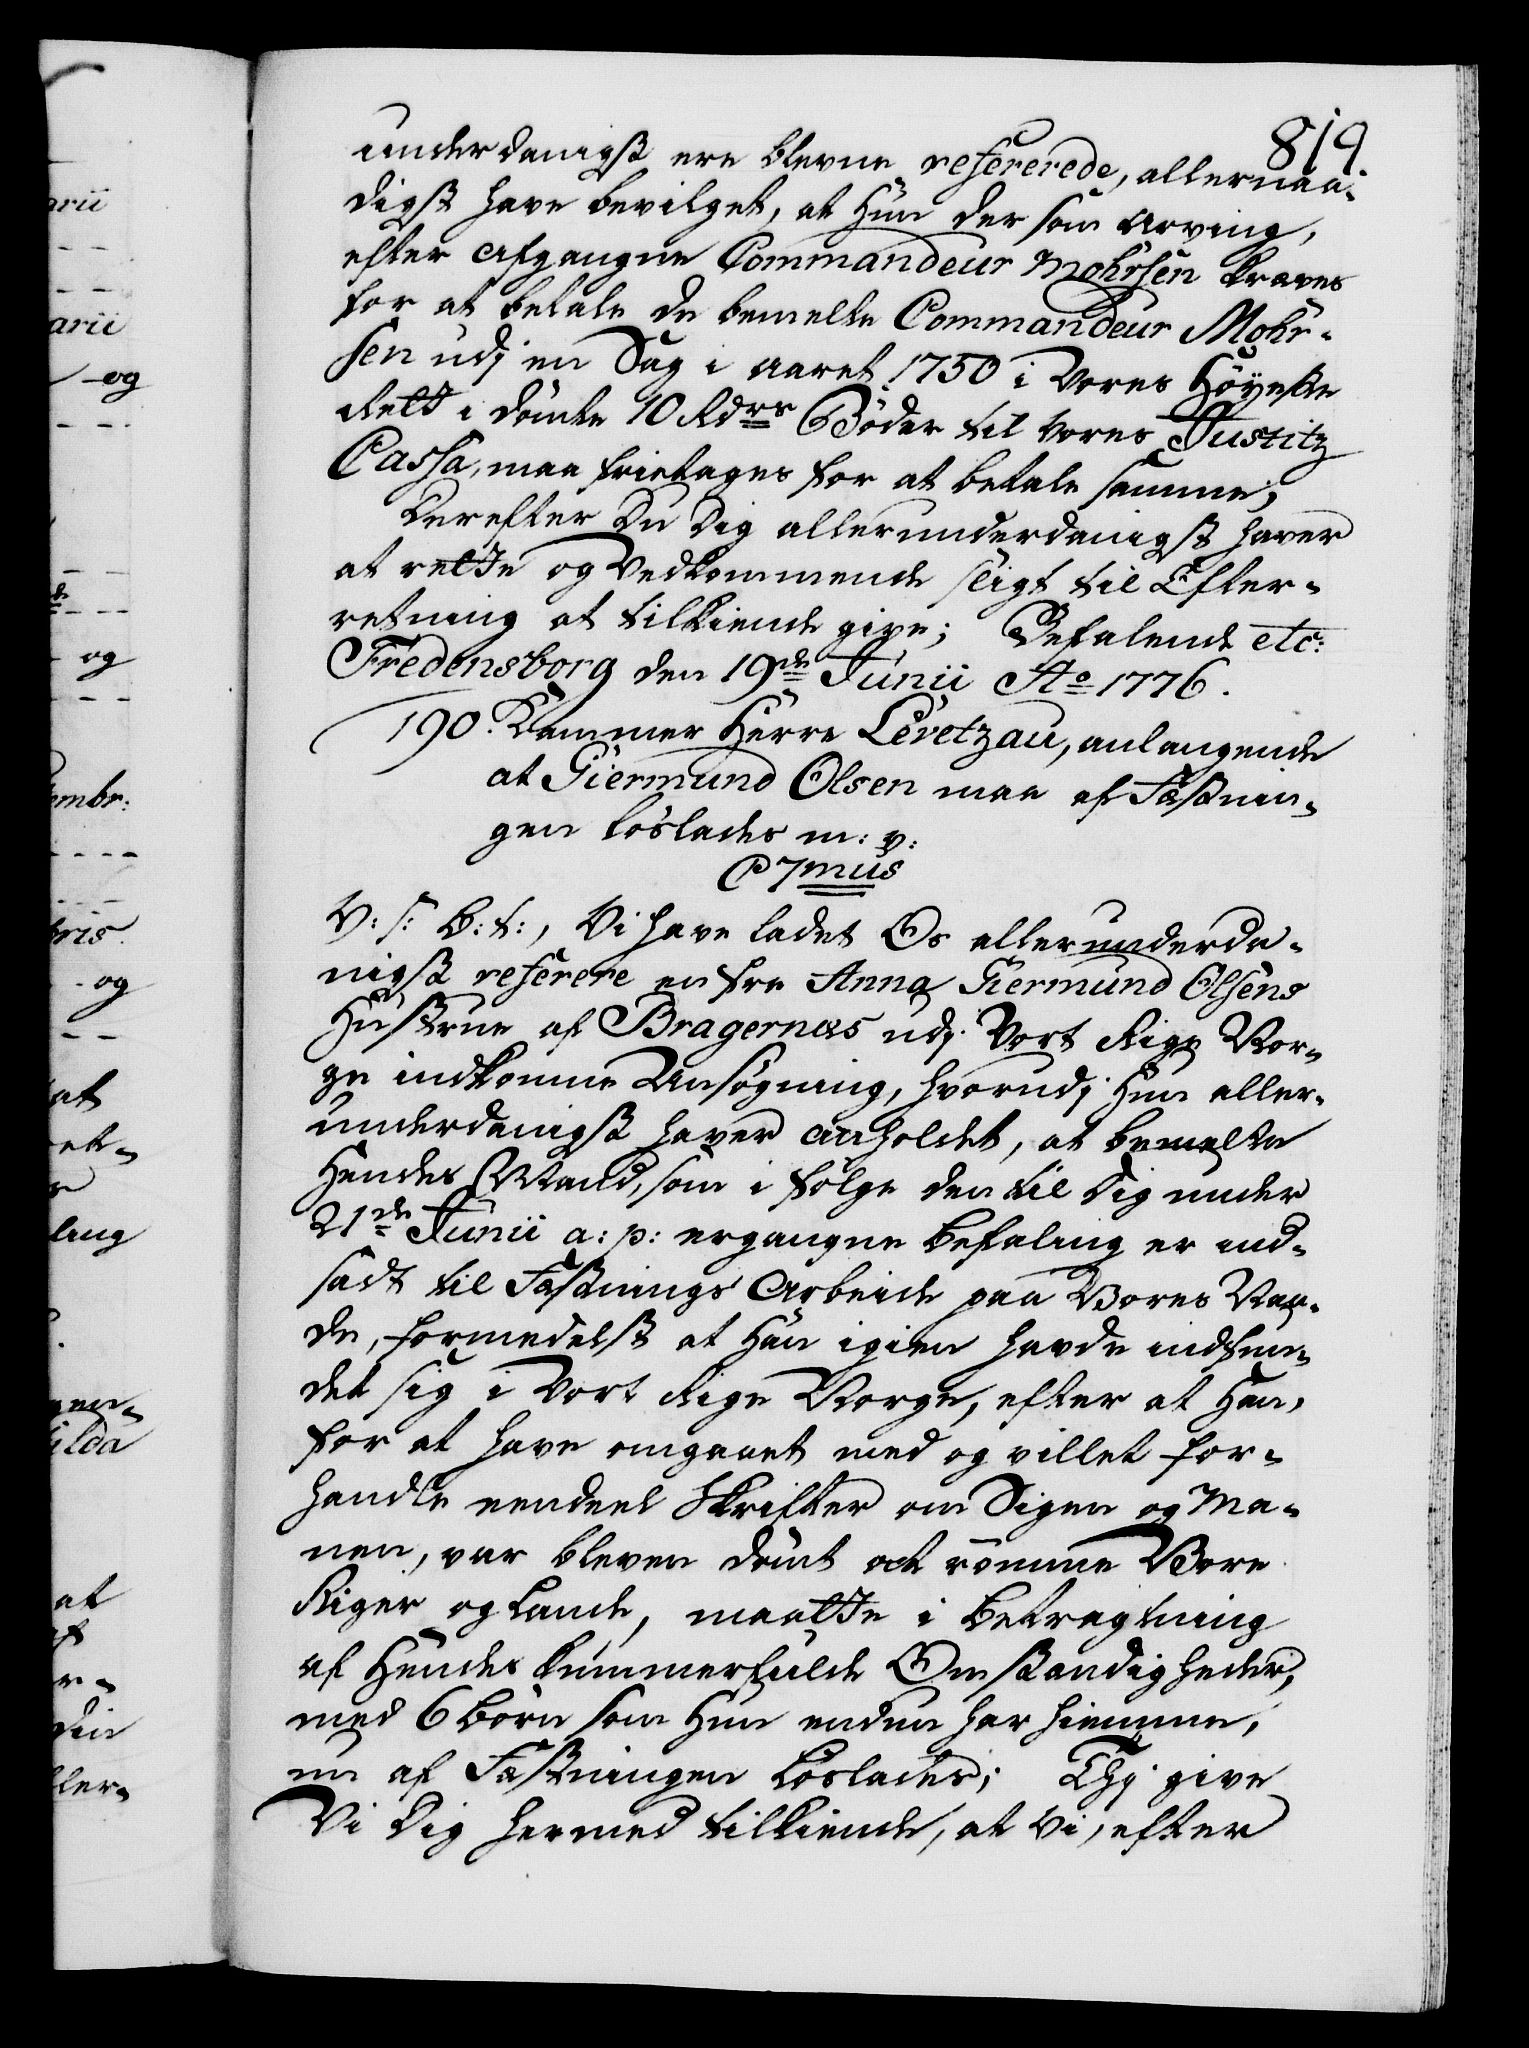 819
underdanigst ere blevne refererede, allernaa-
digst have bevilget, at Hun der som Arving,
efter afgangne Commandeur Mohrsen kraves
for at betale de bemelte Commandeur Mohr-
sen udj en Sag i Aaret 1750 i Vores Höyeste
Rett i dömte 10 Rdrs Böder til Vores Justitz
Cassa, maa frietages for at betale samme;
Derefter Du Dig allerunderdanigst haver
at rette og Vedkommende sligt til Efter-
retning at tilkiende give; Befalende etc:
Fredensborg den 19de Junii Ao 1776.
190. Kammer Herre Levetzau, anlangende
at Giermund Olsen maa af Fæstnin-
gen löslades m: v:
C 7mus
V: S: B: t:, Vi have ladet Os allerunderda-
nigst referere en fra Anna Giermund Olsens
Hustrue af Bragernæs udj Vort Rige Nor-
ge indkomme Ansögning, hvorudj Hun aller-
underdanigst haver anholdet, at bemelte
Hendes Mand, som i fölge den til Dig under
21de Junii a: p: ergangne Befaling er ind-
sadt til Fæstnings Arbeide paa Vores Naa-
de, formedelst at Han igien havde indfun-
det sig i Vort Rige Norge, efter at Han,
for at have omgaaet med og villet for-
handle eendeel Skrifter om Sigen og Ma-
nen, var bleven dömt at römme Vore
Riger og Lande, maatte i betragtning
af Hendes kummerfulde Omstændigheder,
med 6 börn som Hun enden har hiemme,
nu af Fæstningen löslades; Thj give
Vi Dig hermed tilkiende, at Vi, efter
arii
arii
og
og
embr:
bris.
og
at
ret-
lang
gen-
ilda
at
af
er-
din
ller-